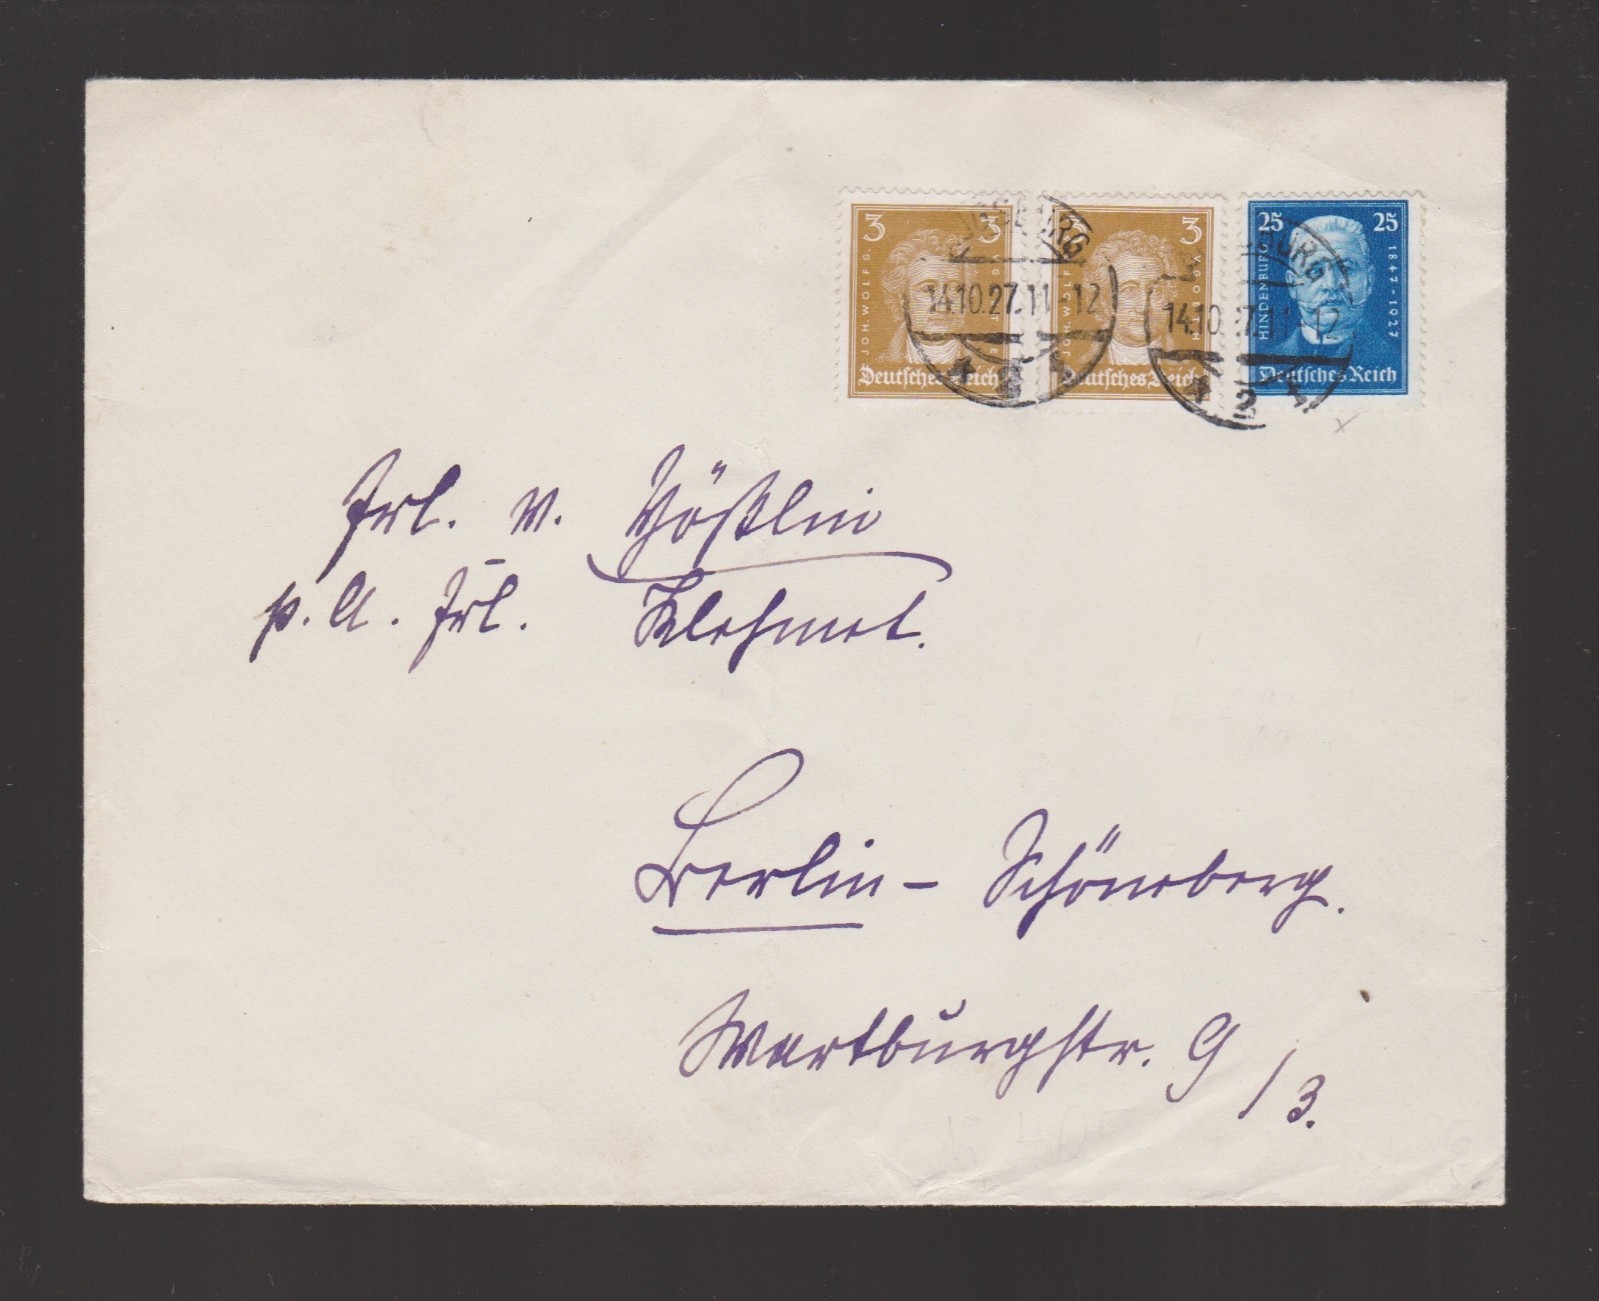 3 3 3 25 25
JOH. WOLFG. V. GOETHE JOH. WOLFG. V. GOETH HINDENBURG 1847-1927
14.10.27.11-12 14.10.27.11-12
Deutsches Reich Deutsches Reich Deutsches Reich
2 2
Frl. v.
p. A. Frl. Klehmet.
Berlin - Schöneberg.
Wartburgstr. 9/3.